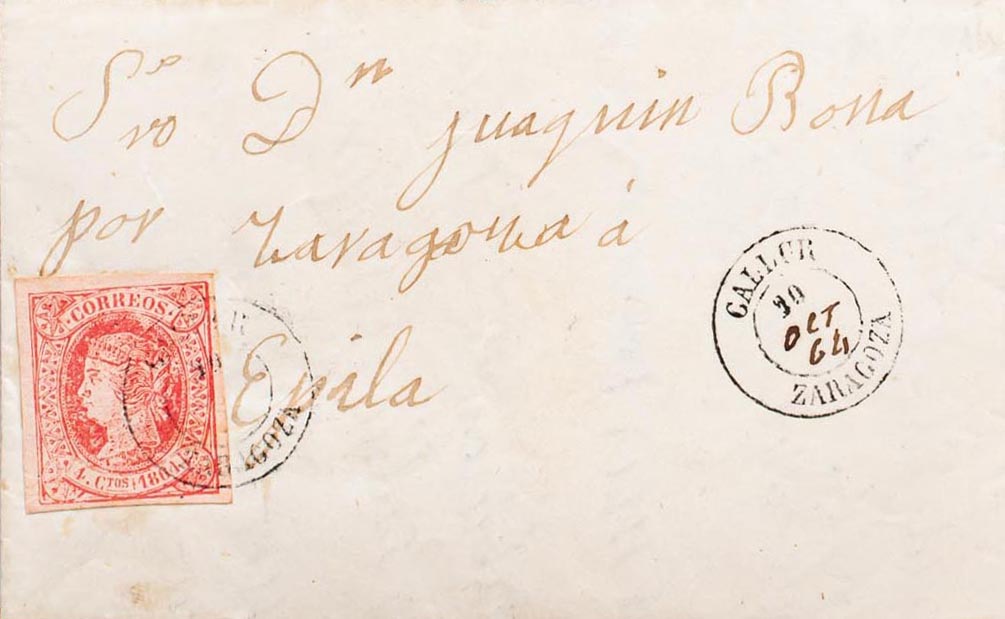 Sro Dn Juaquin Bona
por Zaragoza á
Epila
CORREOS
4. CTOS 1864
ZARAGOZA
GALLUR
30
OCT
64
ZARAGOZA